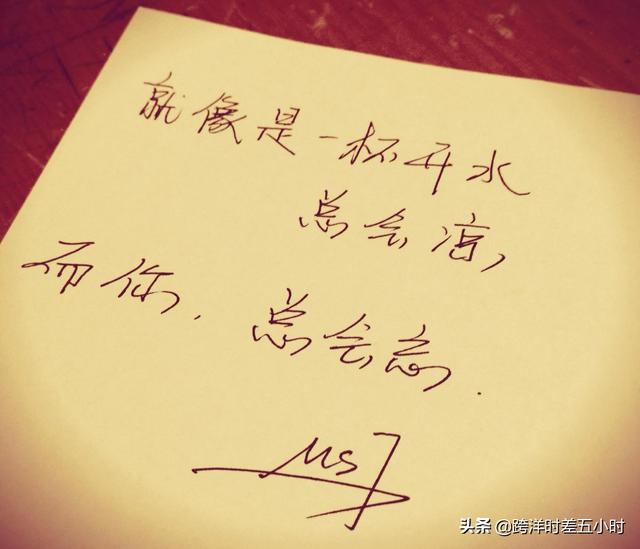 就像是一杯开水
总会凉,
而你, 总会忘.
头条 @跨洋时差五小时